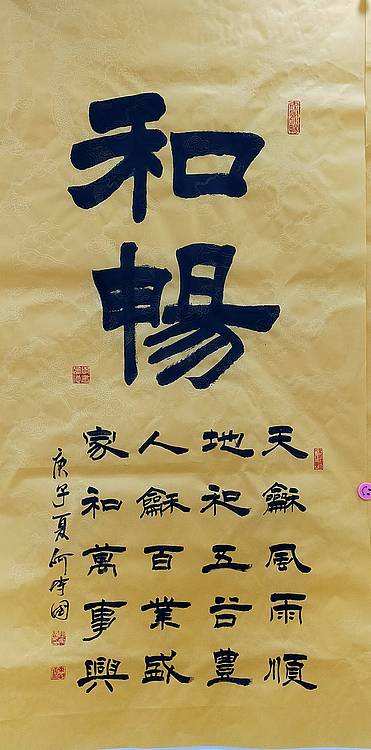 和暢
天龢風雨順
地和五谷豊
人龢百業盛
家和萬事興
庚子夏何国